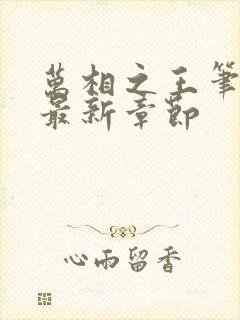 萬相之王筆
最新章節
心雨留香